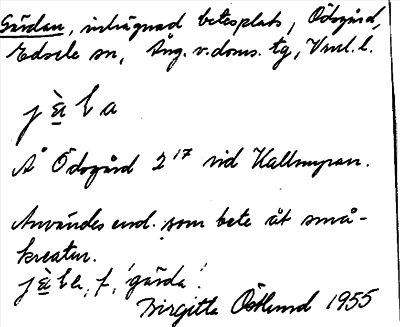 Gärdan, inhägnad betesplats, Ödsgård,
Edsele sn, Ång. v. doms. tg, Vnrl. l.
jä̀la
Å Ödsgård 2¹⁷ vid Kallmyran.
Användes end. som bete åt små-
kreatur.
jä̀la, f, 'gärda'.
Birgitta Östlund 1955